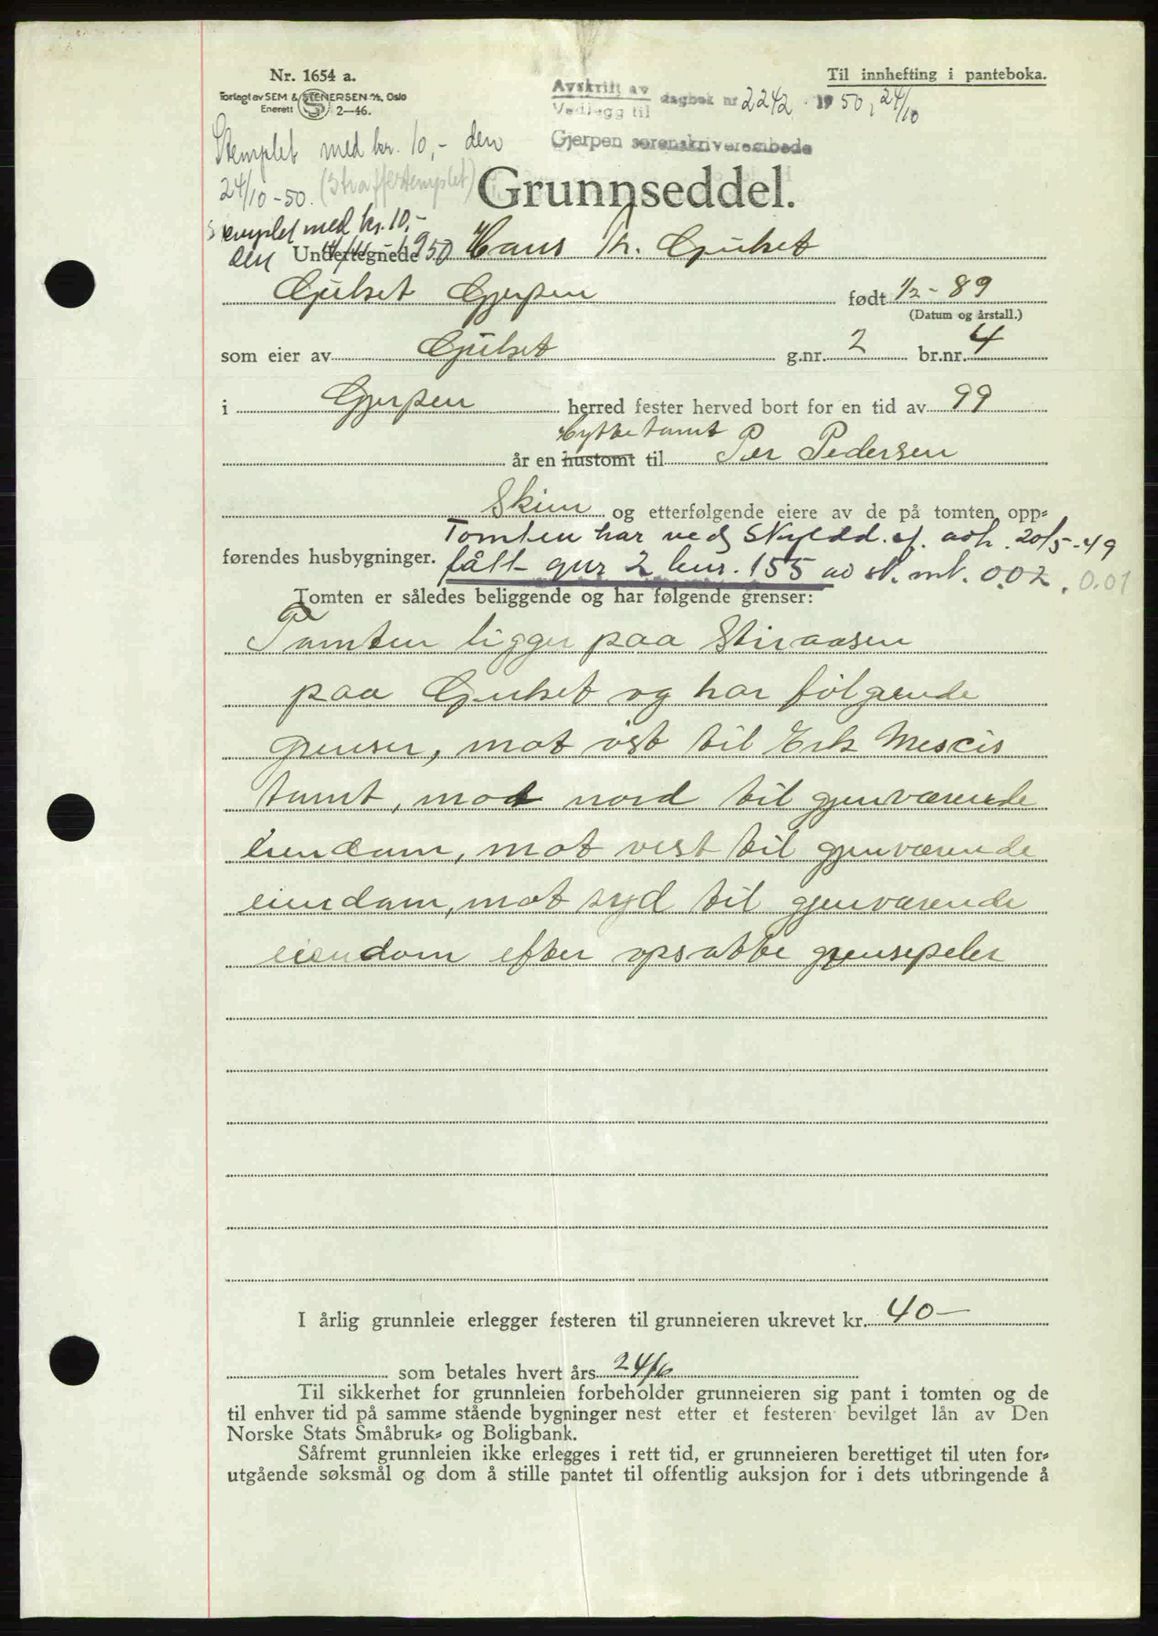 Nr. 1654 a.
Forlagt av SEM & STENERSEN A/S, Oslo
Enerett 2-46.
Til innhefting i panteboka.
Avskrift av
Vedlegg til dagbok nr 2242 1950, 24/10
Gjerpen sorenskriverembede
Stemplet med kr. 10,- den
24/10-50. (Straffestemplet)
Grunnseddel.
Stemplet med kr. 10,-
den 1950
Undertegnede Hans Th. Gjulset
Gjulset Gjerpen født 1/2-89
(Datum og årstall.)
som eier av Gjulset g.nr. 2 br.nr. 4
i Gjerpen herred fester herved bort for en tid av 99
Hyttetomt
år en hustomt til Per Pedersen
Skien og etterfølgende eiere av de på tomten opp=
Tomten har ved skyldd. af. avh. 20/5-49
førendes husbygninger. fått gnr 2 bnr. 155 av sk. mk. 0.02. 0.01
Tomten er således beliggende og har følgende grenser:
Tomten ligger paa Stiraasen
paa Gjulset og har følgende
grenser, mot øst til Erk
tomt, mot nord til gjenværende
eiendom, mot vest til gjenværende
eiendom, mot syd til gjenværende
eiendom efter opsatte grensepeler
I årlig grunnleie erlegger festeren til grunneieren ukrevet kr. 40-
som betales hvert års 24/6
Til sikkerhet for grunnleien forbeholder grunneieren sig pant i tomten og de
til enhver tid på samme stående bygninger nest etter et festeren bevilget lån av Den
Norske Stats Småbruk= og Boligbank.
Såfremt grunnleien ikke erlegges i rett tid, er grunneieren berettiget til uten for=
utgående søksmål og dom å stille pantet til offentlig auksjon for i dets utbringende å